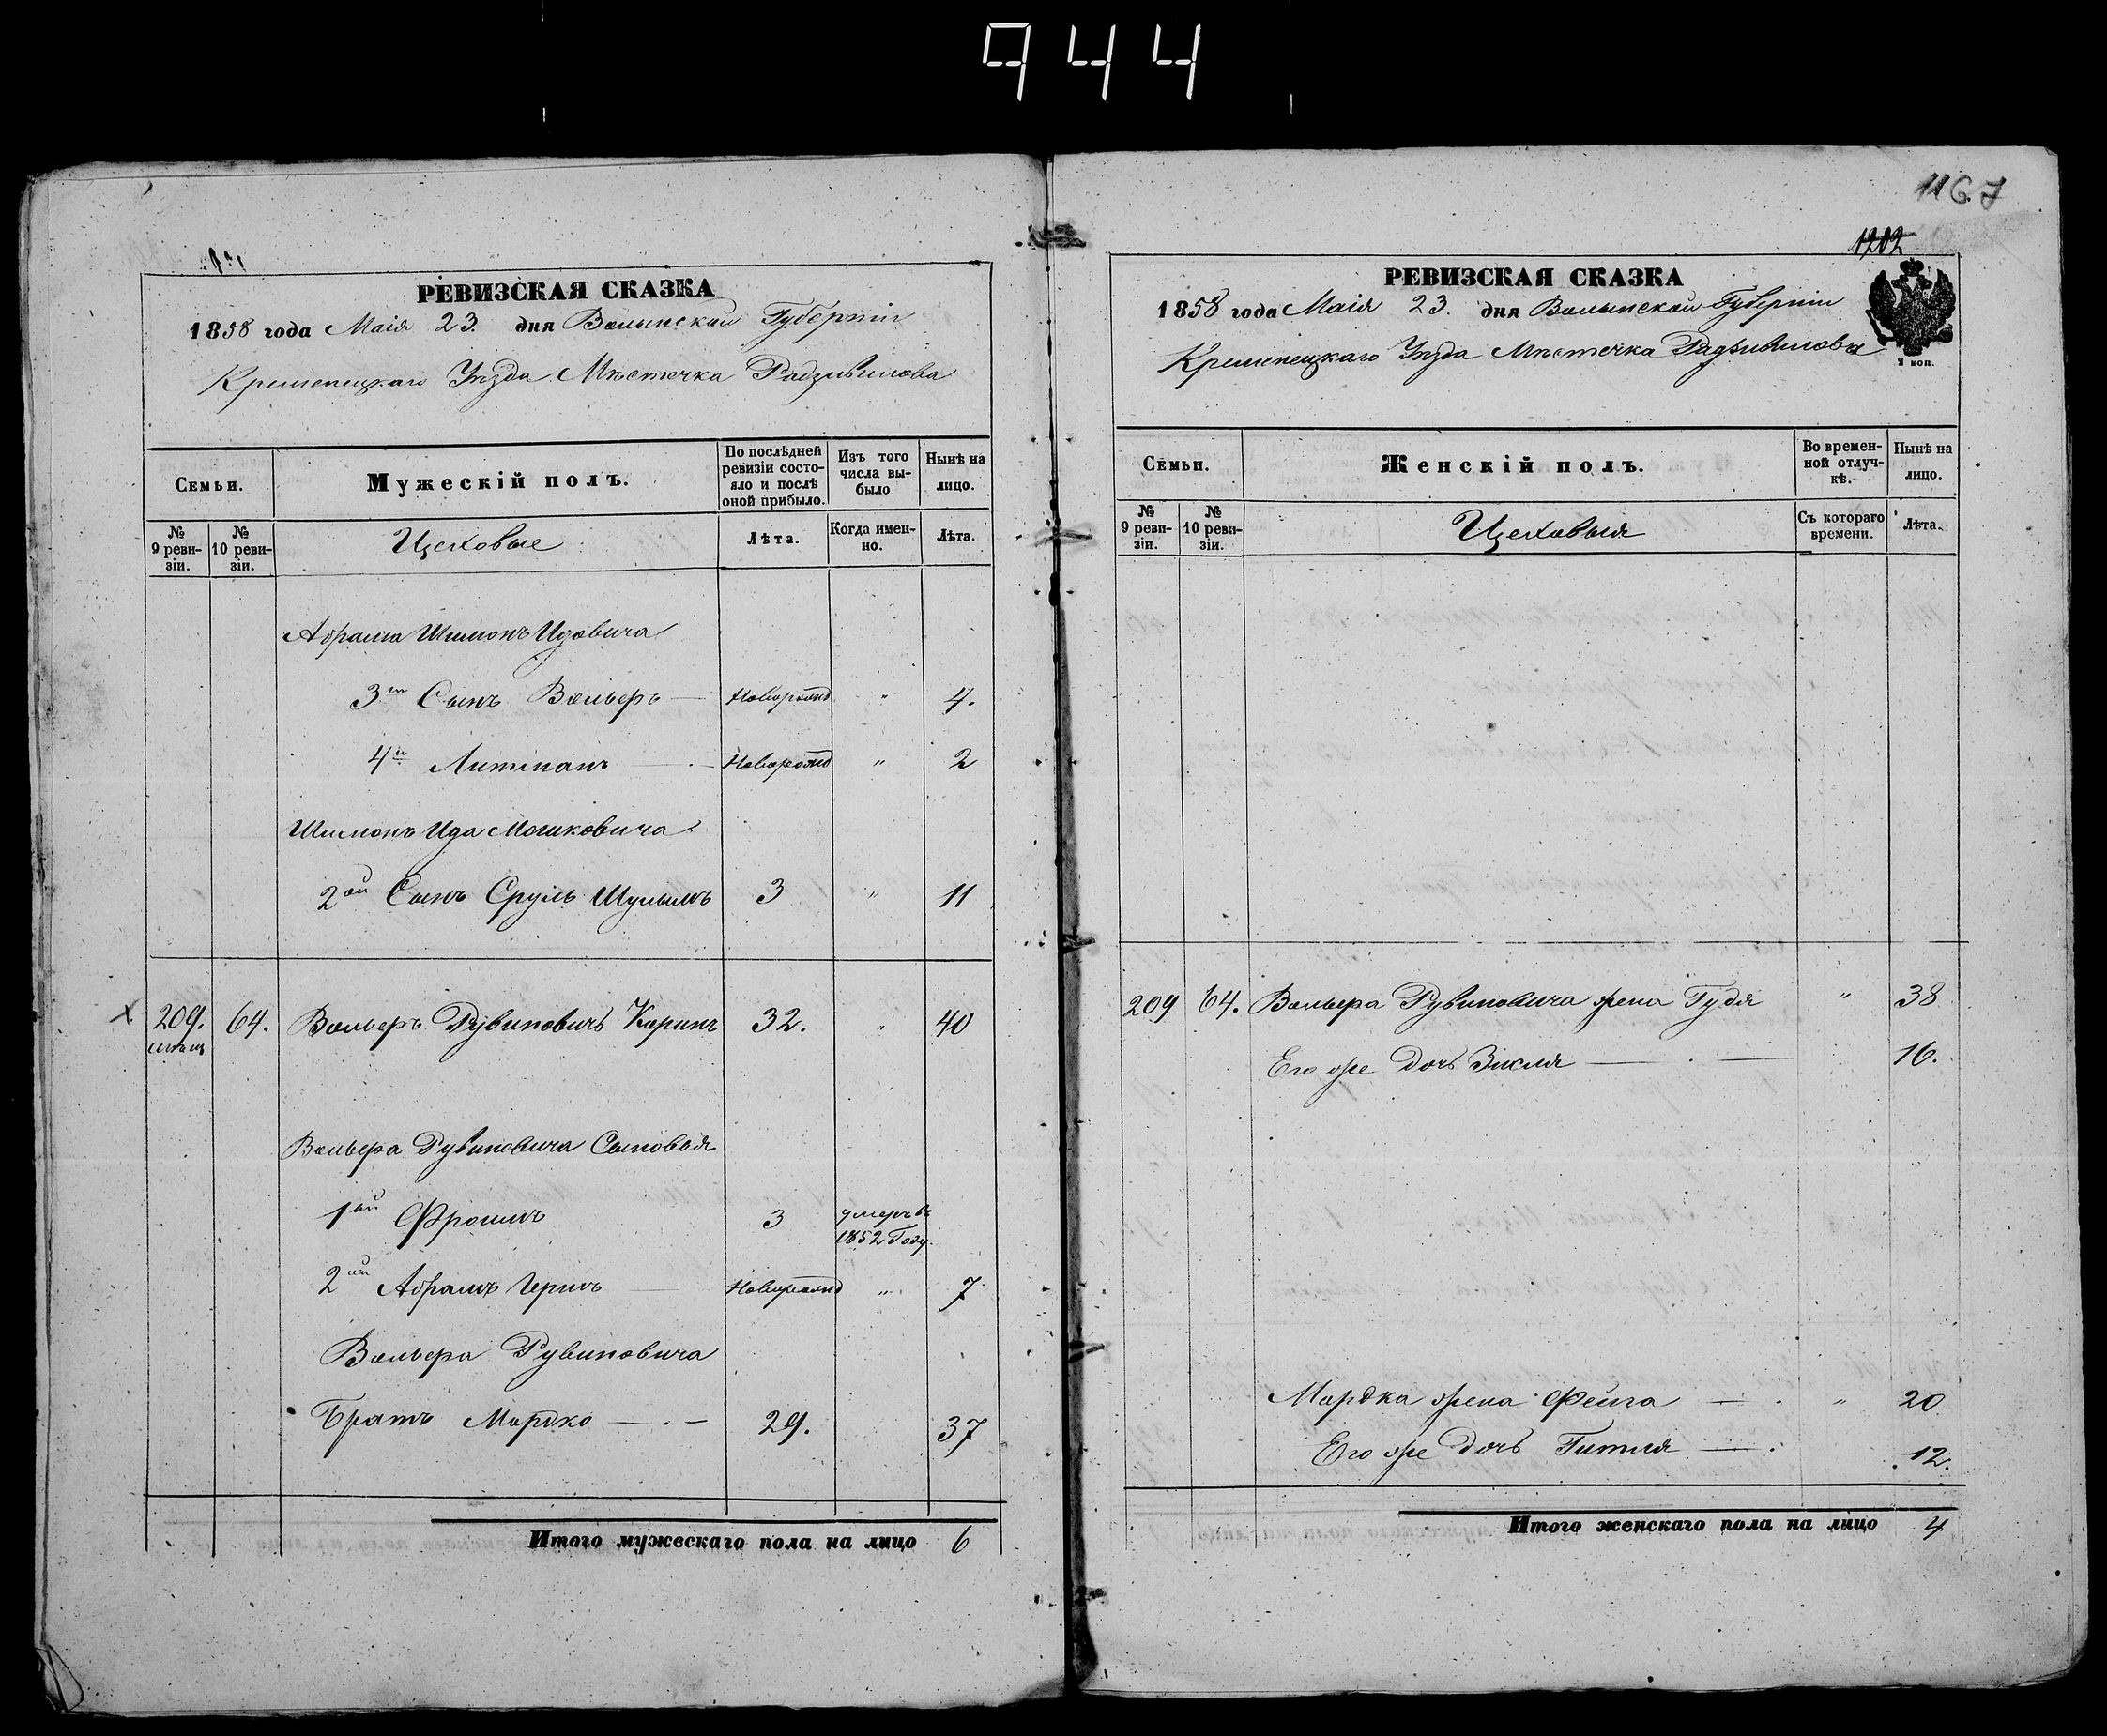 944
1167
1202
РЕВИЗСКАЯ СКАЗКА
1858 года Маія 23. дня Волынской Губерніи
Кременецкаго Уѣзда Мѣстечка Радзивилова
Семьи.
Мужескій полъ.
По послѣдней ревизіи состояло и послѣ оной прибыло.
Изъ того числа выбыло
Нынѣ на лицо.
№ 9 ревизіи.
№ 10 ревизіи.
Цеховые
Лѣта.
Когда именно.
Лѣта.
Абрама Шимонъ Идовича
3й Сынъ Вольферъ — Новорожд " 4.
4й — Новорожд " 2
Шимонъ Ида Мошковича
2ой Сынъ Сруль Шулымъ 3 " 11
209. 64. Вольферъ Рувиновичъ Коринъ 32. " 40
Вольфера Рувиновича Сыновья
1ый Фроимъ 3 умеръ въ 1852 Году.
2ой Абрамъ Гершъ — Новорожд " 7
Вольфера Рувиновича
Братъ Мордко — . — 29. 37
Итого мужескаго пола на лицо 6
РЕВИЗСКАЯ СКАЗКА
1858 года Маія 23. дня Волынской Губерніи
Кременецкаго Уѣзда Мѣстечка Радзивилова
2 коп.
Семьи.
Женскій полъ.
Во временной отлучкѣ.
Нынѣ на лицо.
№ 9 ревизіи.
№ 10 ревизіи.
Цеховыя
Съ котораго времени.
Лѣта.
209 64. Вольфера Рувиновича жена Гудя " 38
Его же дочь — . — 16.
Мордка жена Фейга — . " 20
Его же дочь Гитля — . 12.
Итого женскаго пола на лицо 4